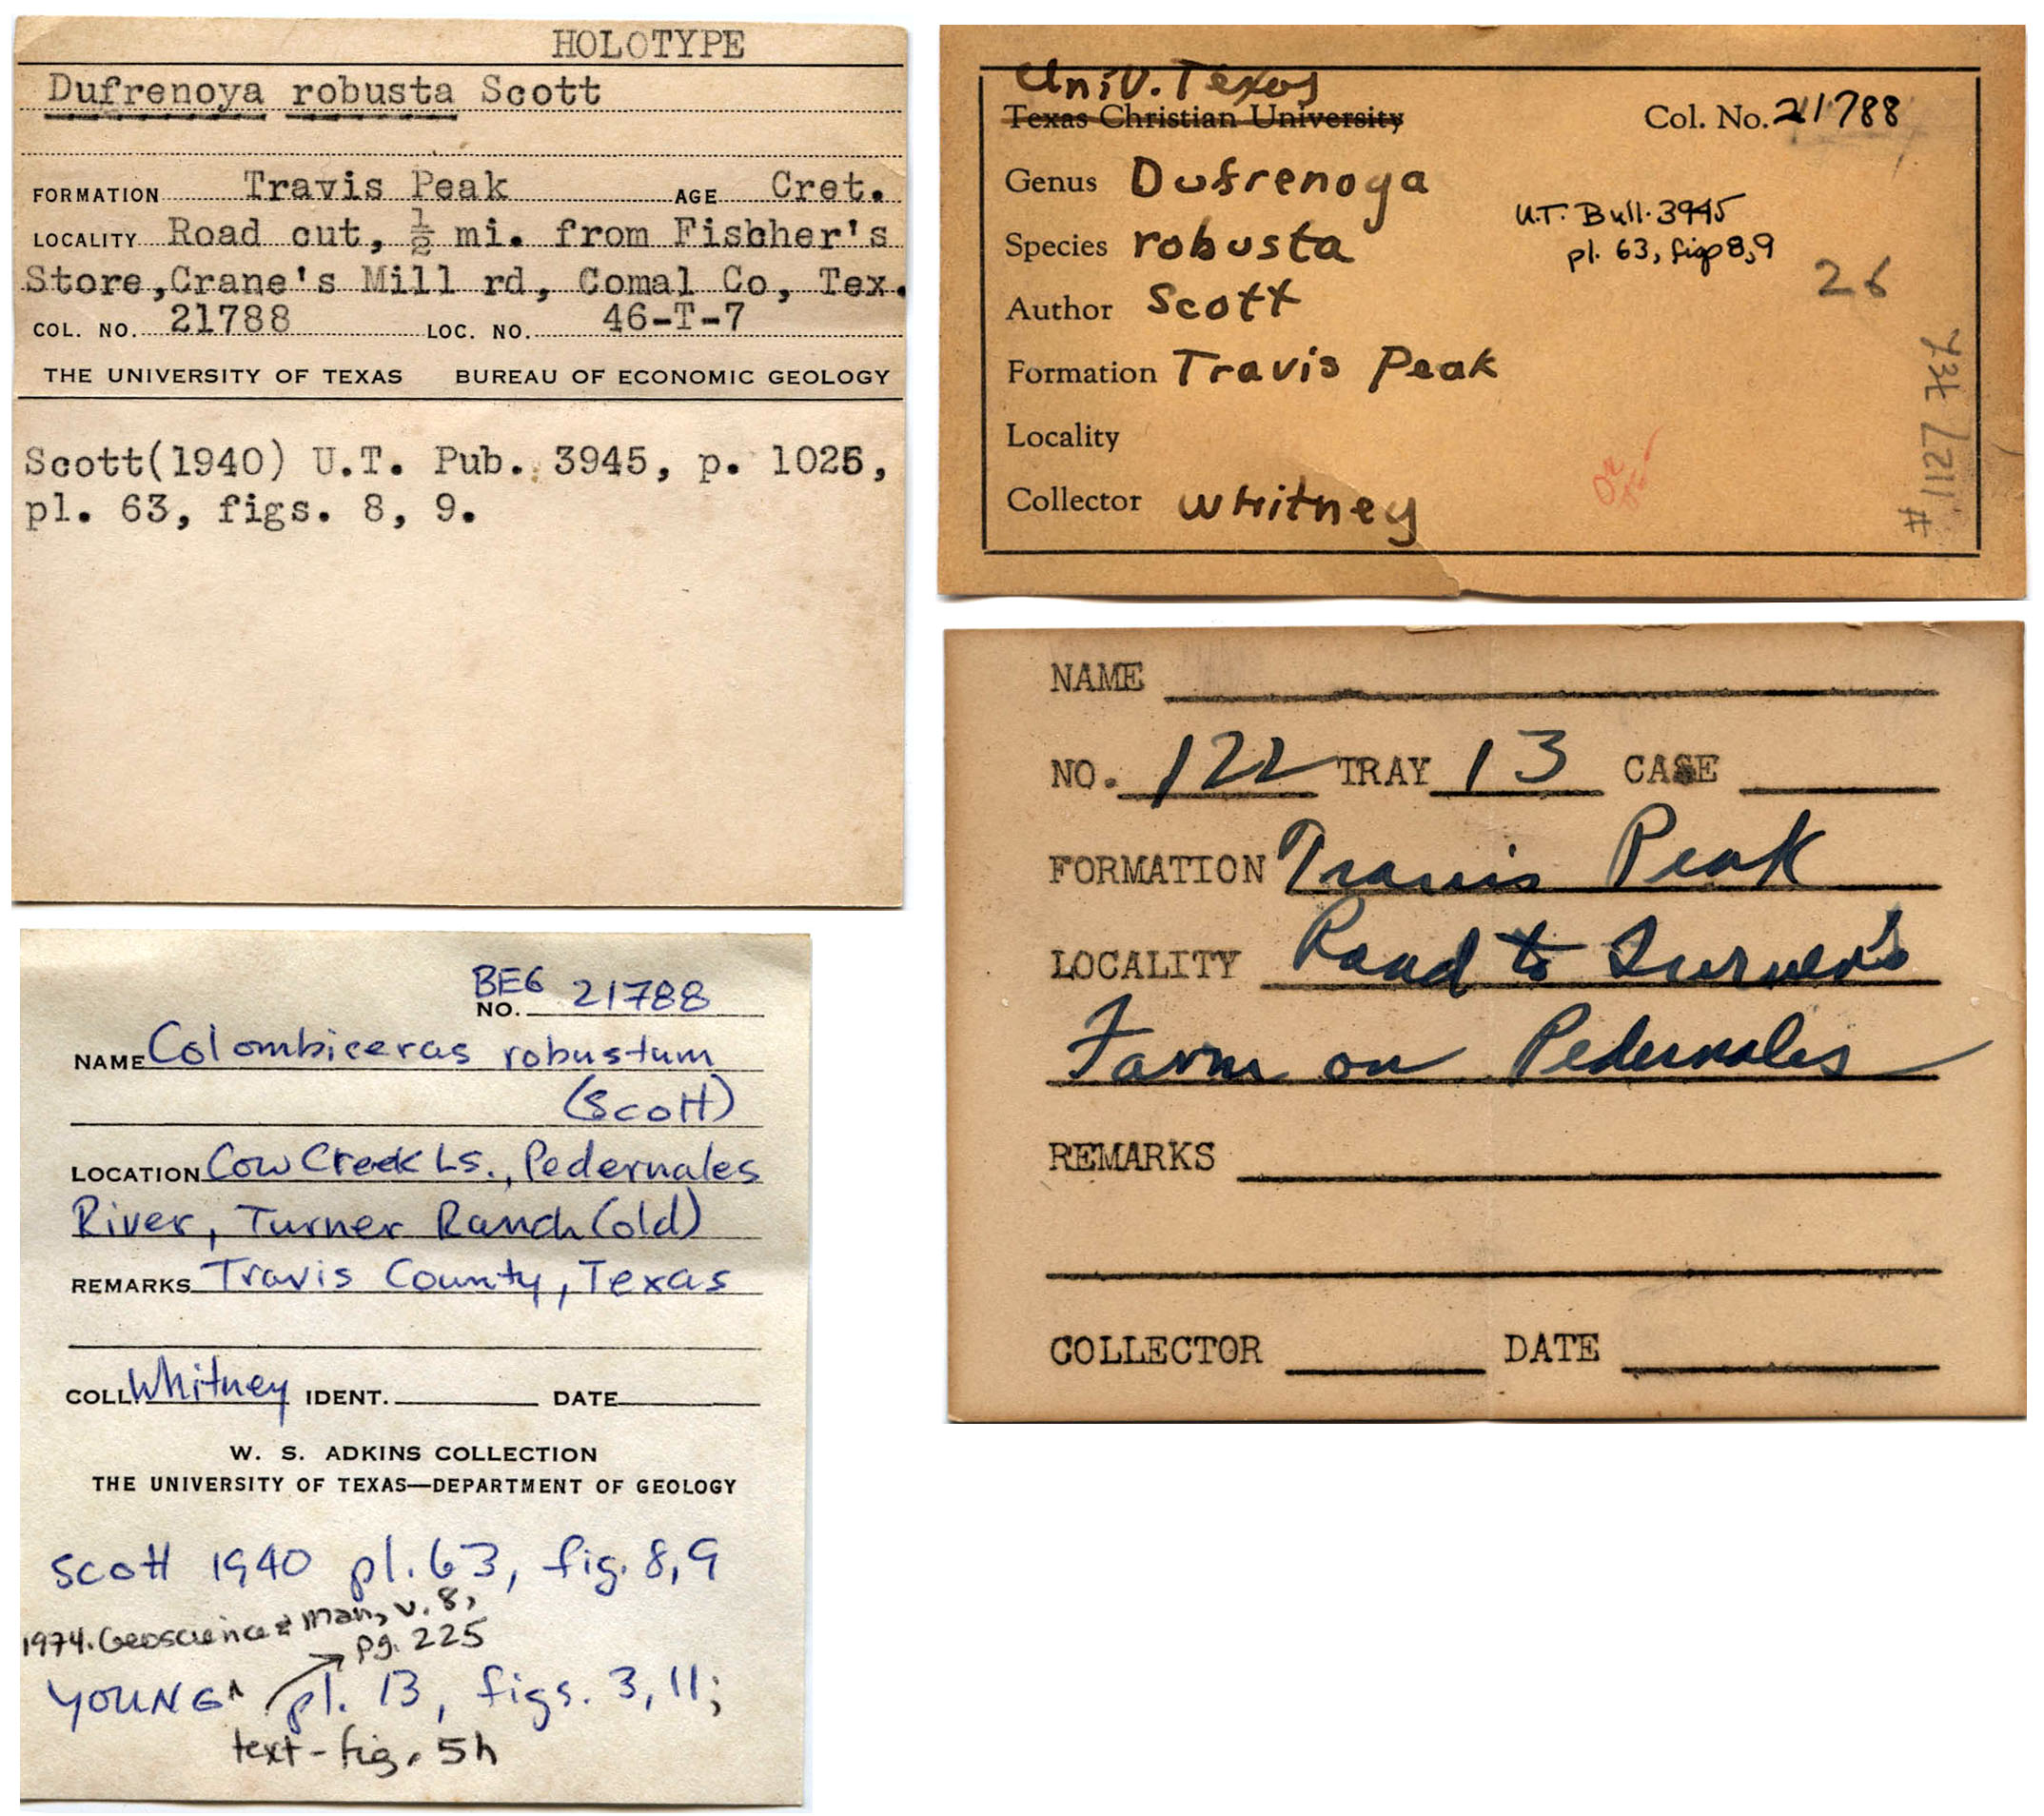 HOLOTYPE
Dufrenoya robusta Scott
FORMATION Travis Peak AGE Cret.
LOCALITY Road cut, ½ mi. from Fischer's
Store, Crane's Mill rd, Comal Co, Tex.
COL. NO. 21788 LOC. NO. 46-T-7
THE UNIVERSITY OF TEXAS BUREAU OF ECONOMIC GEOLOGY
Scott(1940) U.T. Pub. 3945, p. 1025,
pl. 63, figs. 8, 9.
Univ. Texas
Texas Christian University Col. No. 21788
Genus Dufrenoya
U.T. Bull. 3945
Species robusta
pl. 63, fig 8,9
26
Author Scott
Formation Travis Peak
Locality
Collector Whitney
NAME
NO. 122 TRAY 13 CASE
FORMATION Travis Peak
LOCALITY Road to Turner's
Farm on Pedernales
REMARKS
COLLECTOR DATE
BEG
NO. 21788
NAME Colombiceras robustum
(Scott)
LOCATION Cow Creek Ls., Pedernales
River, Turner Ranch (old)
REMARKS Travis County, Texas
COLL Whitney IDENT. DATE
W. S. ADKINS COLLECTION
THE UNIVERSITY OF TEXAS—DEPARTMENT OF GEOLOGY
Scott 1940 pl. 63, fig. 8,9
1974. Geoscience & Man, v. 8,
pg. 225
YOUNG ^ pl. 13, figs. 3, 11;
text-fig. 5h